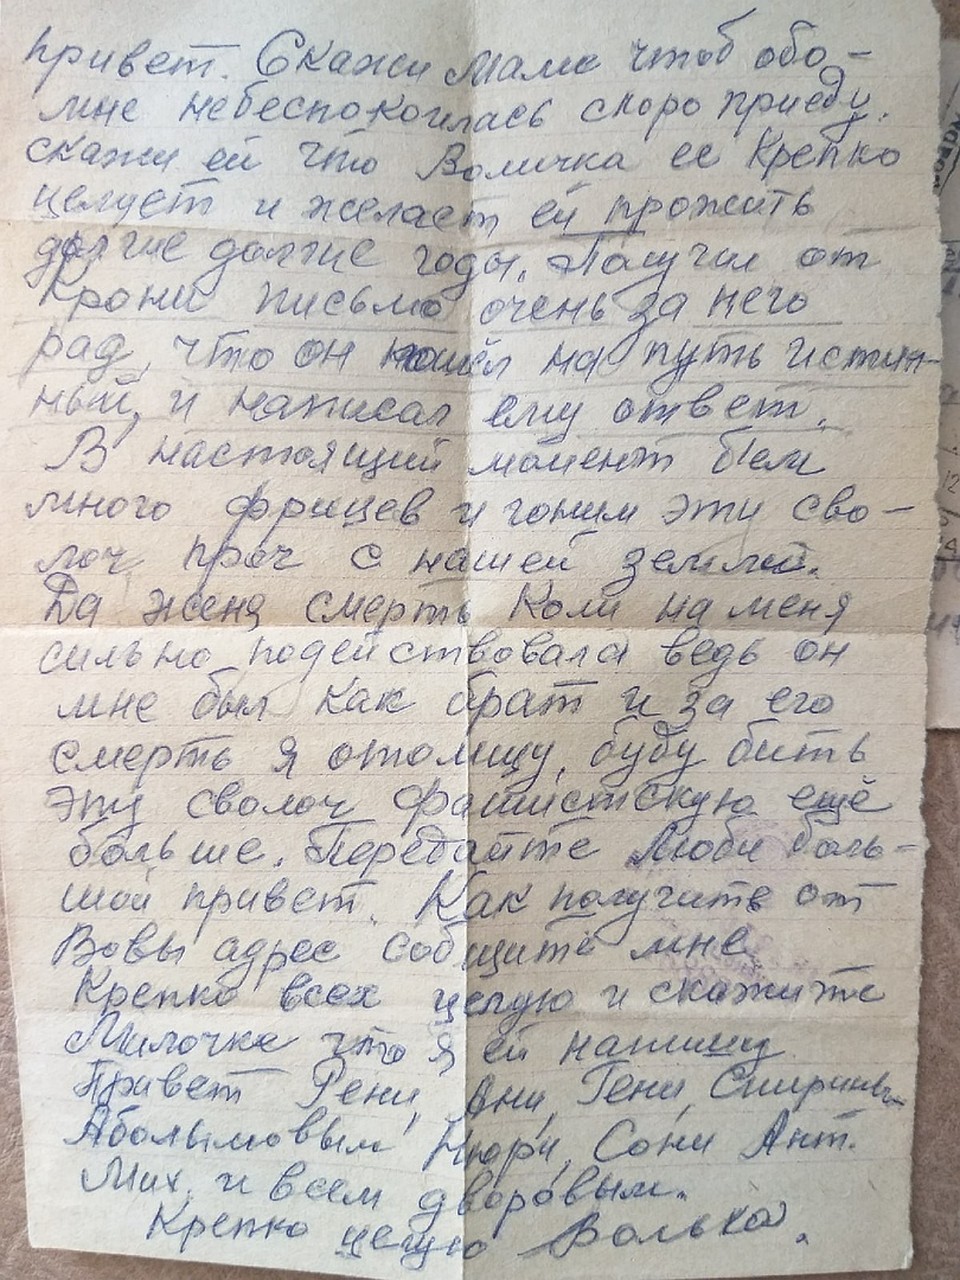 привет. Скажи Маме чтоб обо-
мне небеспокоилась скоро приеду.
скажи ей что Воличка ее Крепко
целует и желает ей прожить
долгие долгие годы. Получил от
Крони письмо очень за него
рад, что он пошёл на путь истин-
ный, и написал ему ответ.
В настоящий момент бьем
много фрицев и гоним эту сво-
лоч проч с нашей земли.
Да Женя смерть Коли на меня
сильно подействовала ведь он
мне был как брат и за его
смерть я отомщу, буду бить
эту сволоч фашистскую ещё
больше. Передайте Любе боль-
шой привет. Как получите от
Вовы адрес собщите мне
Крепко всех целую и скажите
Милочке что я ей напишу
Привет Рени, Ани, Гени,
Сони Ант.
Мих. и всем дворовым.
Крепко целую Волька.